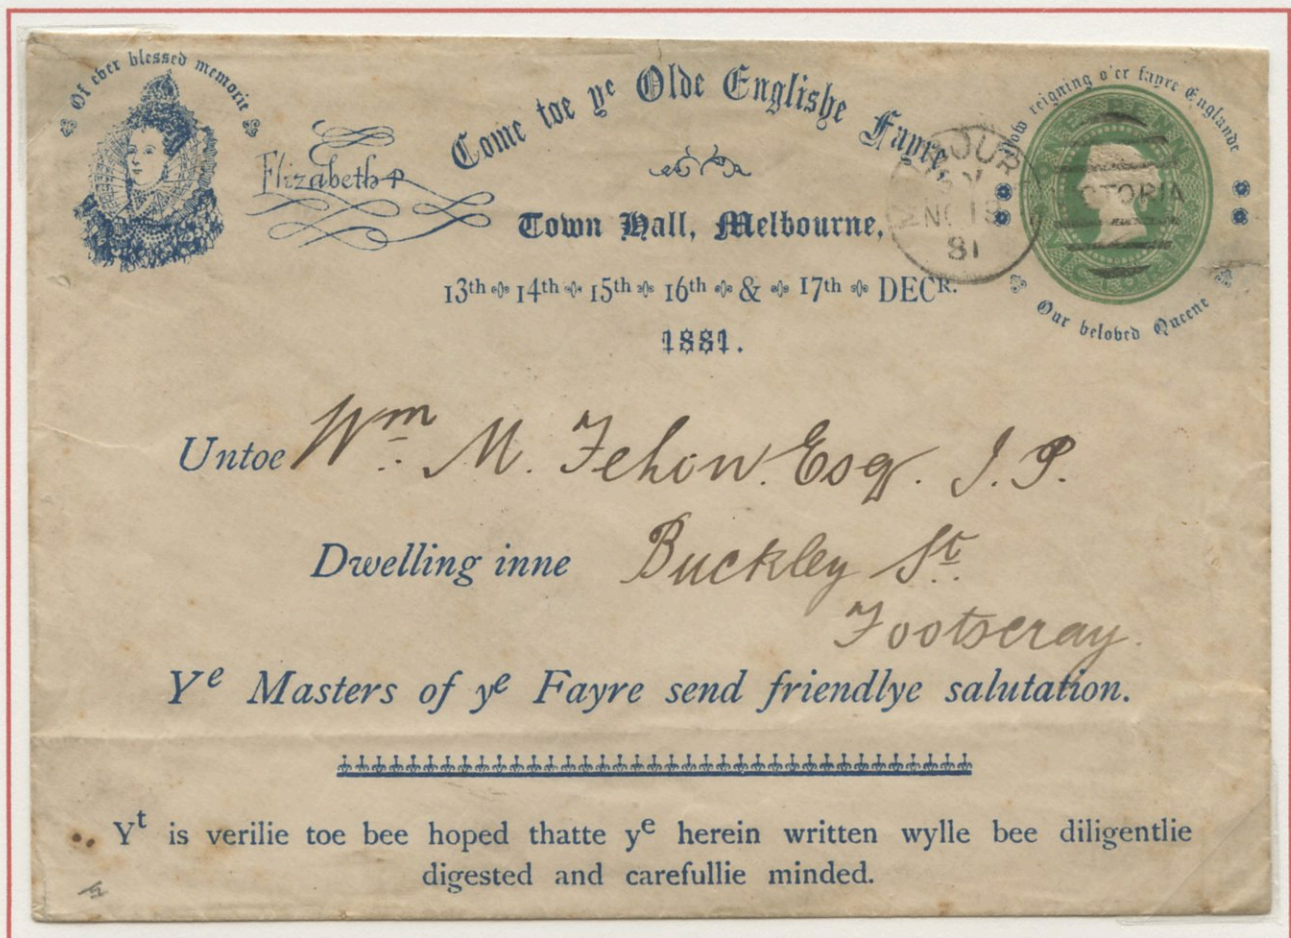 Of ever blessed memorie
Elizabeth R
Come toe ye Olde Englishe Fayre
Town Hall, Melbourne,
13th 14th 15th 16th & 17th DECR.
1881.
Now reigning o'er fayre Englande
ONE PENNY
VICTORIA
Our beloved Queene
5Y
NO 18
81
VICTORIA
Untoe Wm. M. Fehon. Esqr. J. P.
Dwelling inne Buckley St.
Footscray.
Ye Masters of ye Fayre send friendlye salutation.
Yt is verilie toe bee hoped thatte ye herein written wylle bee diligentlie
digested and carefullie minded.